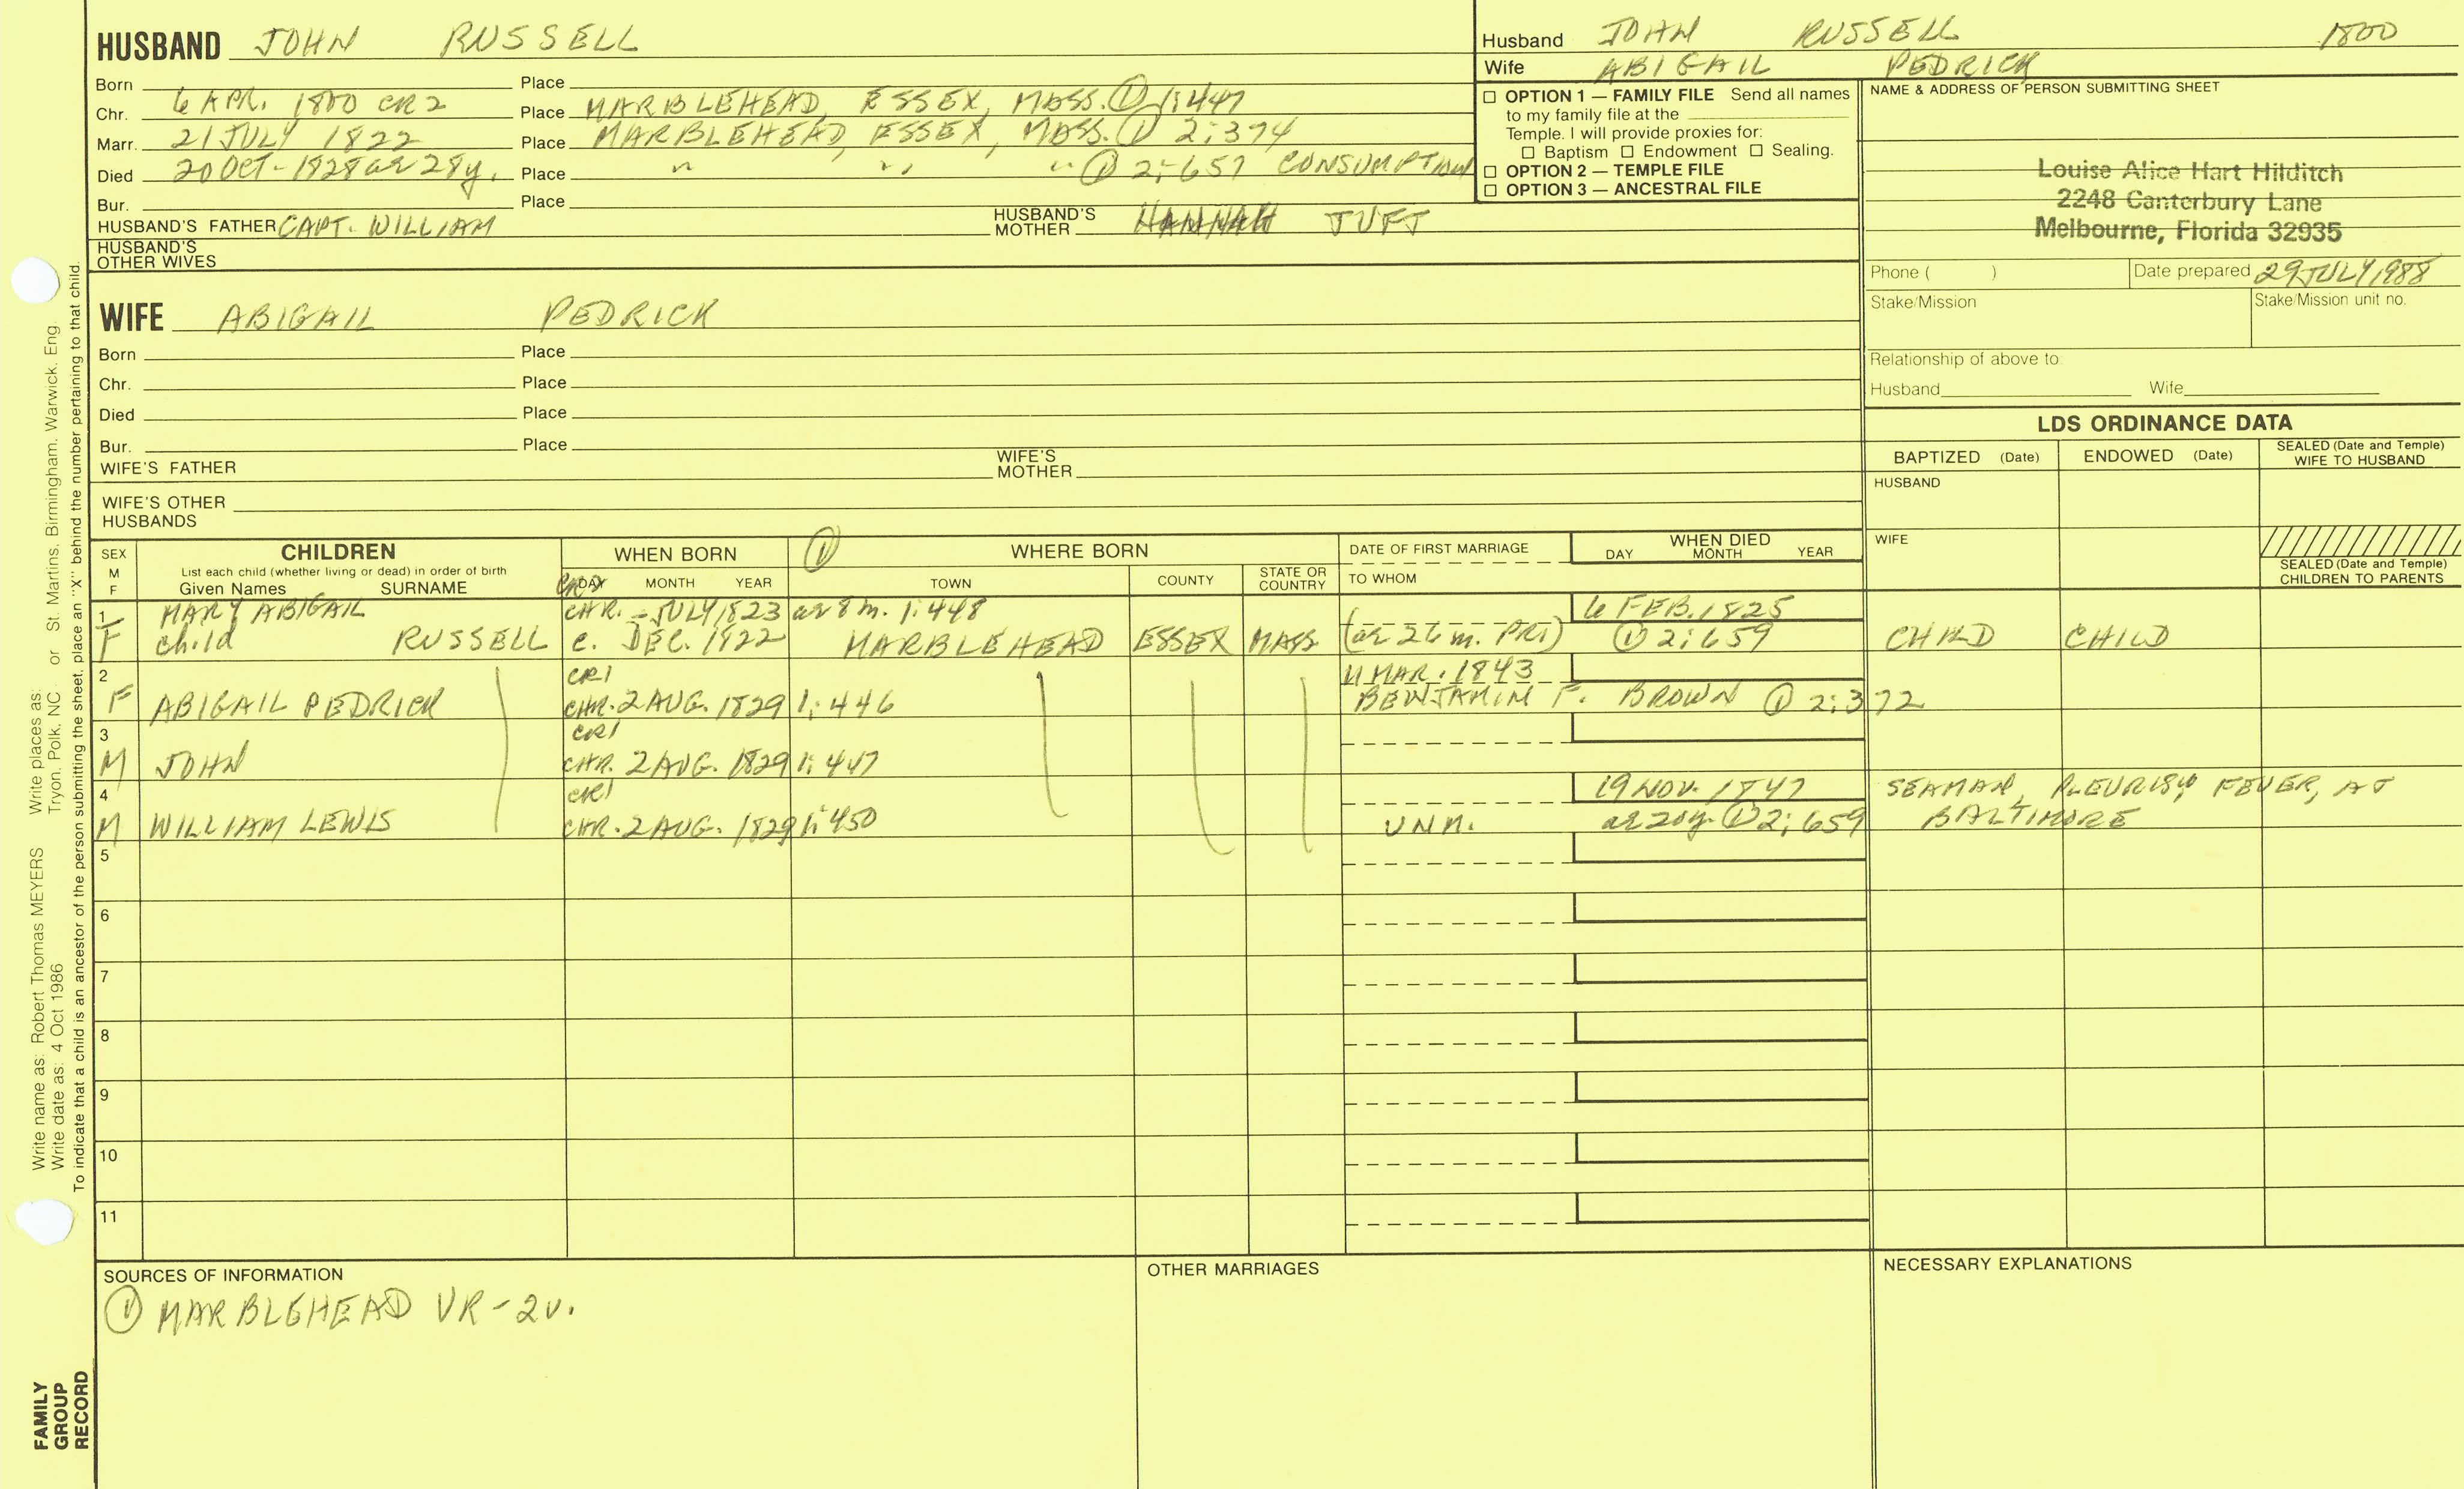 HUSBAND JOHN RUSSELL
Born Place
Chr. 6 APR. 1800 CR2 Place MARBLEHEAD, ESSEX, MASS. ① 1:447
Marr. 21 JULY 1822 Place MARBLEHEAD, ESSEX, MASS. ① 2:374
Died 20 OCT-1828 ae 28y. Place " " " ① 2:657 CONSUMPTION
Bur. Place
HUSBAND'S FATHER CAPT. WILLIAM HUSBAND'S MOTHER HANNAH TUFT
HUSBAND'S OTHER WIVES
Husband JOHN RUSSELL 1800
Wife ABIGAIL PEDRICK
☐ OPTION 1 — FAMILY FILE Send all names
to my family file at the
Temple. I will provide proxies for:
☐ Baptism ☐ Endowment ☐ Sealing.
☐ OPTION 2 — TEMPLE FILE
☐ OPTION 3 — ANCESTRAL FILE
NAME & ADDRESS OF PERSON SUBMITTING SHEET
Louise Alice Hart Hilditch
2248 Canterbury Lane
Melbourne, Florida 32935
Phone ( ) Date prepared 29 JULY 1988
Stake/Mission Stake/Mission unit no.
Relationship of above to:
Husband Wife
WIFE ABIGAIL PEDRICK
Born Place
Chr. Place
Died Place
Bur. Place
WIFE'S FATHER WIFE'S MOTHER
WIFE'S OTHER HUSBANDS
LDS ORDINANCE DATA
BAPTIZED (Date) ENDOWED (Date) SEALED (Date and Temple) WIFE TO HUSBAND
HUSBAND
WIFE
SEALED (Date and Temple) CHILDREN TO PARENTS
SEX M F CHILDREN
List each child (whether living or dead) in order of birth
Given Names SURNAME
WHEN BORN ① WHERE BORN
DAY MONTH YEAR TOWN COUNTY STATE OR COUNTRY
DATE OF FIRST MARRIAGE
TO WHOM
WHEN DIED
DAY MONTH YEAR
1 MARY ABIGAIL CHR. - JULY 1823 ae 8 m. 1:448 6 FEB. 1825
F child RUSSELL c. DEC. 1822 MARBLEHEAD ESSEX MASS (ae 26 m. PR1) ① 2:659 CHILD CHILD
2 CR1 11 MAR. 1843
F ABIGAIL PEDRICK CHR. 2 AUG. 1829 1:446 BENJAMIN F. BROWN ① 2:372
3 CR1
M JOHN CHR. 2 AUG. 1829 1:447
4 CR1 19 NOV. 1847 SEAMAN, PLEURISY FEVER, AT
M WILLIAM LEWIS CHR. 2 AUG. 1829 1:450 UNM. ae 20y. ① 2:659 BALTIMORE
5
6
7
8
9
10
11
SOURCES OF INFORMATION
① MARBLEHEAD VR-2v.
OTHER MARRIAGES
NECESSARY EXPLANATIONS
Write name as: Robert Thomas MEYERS Write places as: St. Martins, Birmingham, Warwick, Eng.
Write date as: 4 Oct 1986 Tryon, Polk, NC or
To indicate that a child is an ancestor of the person submitting the sheet, place an "X" behind the number pertaining to that child.
FAMILY
GROUP
RECORD